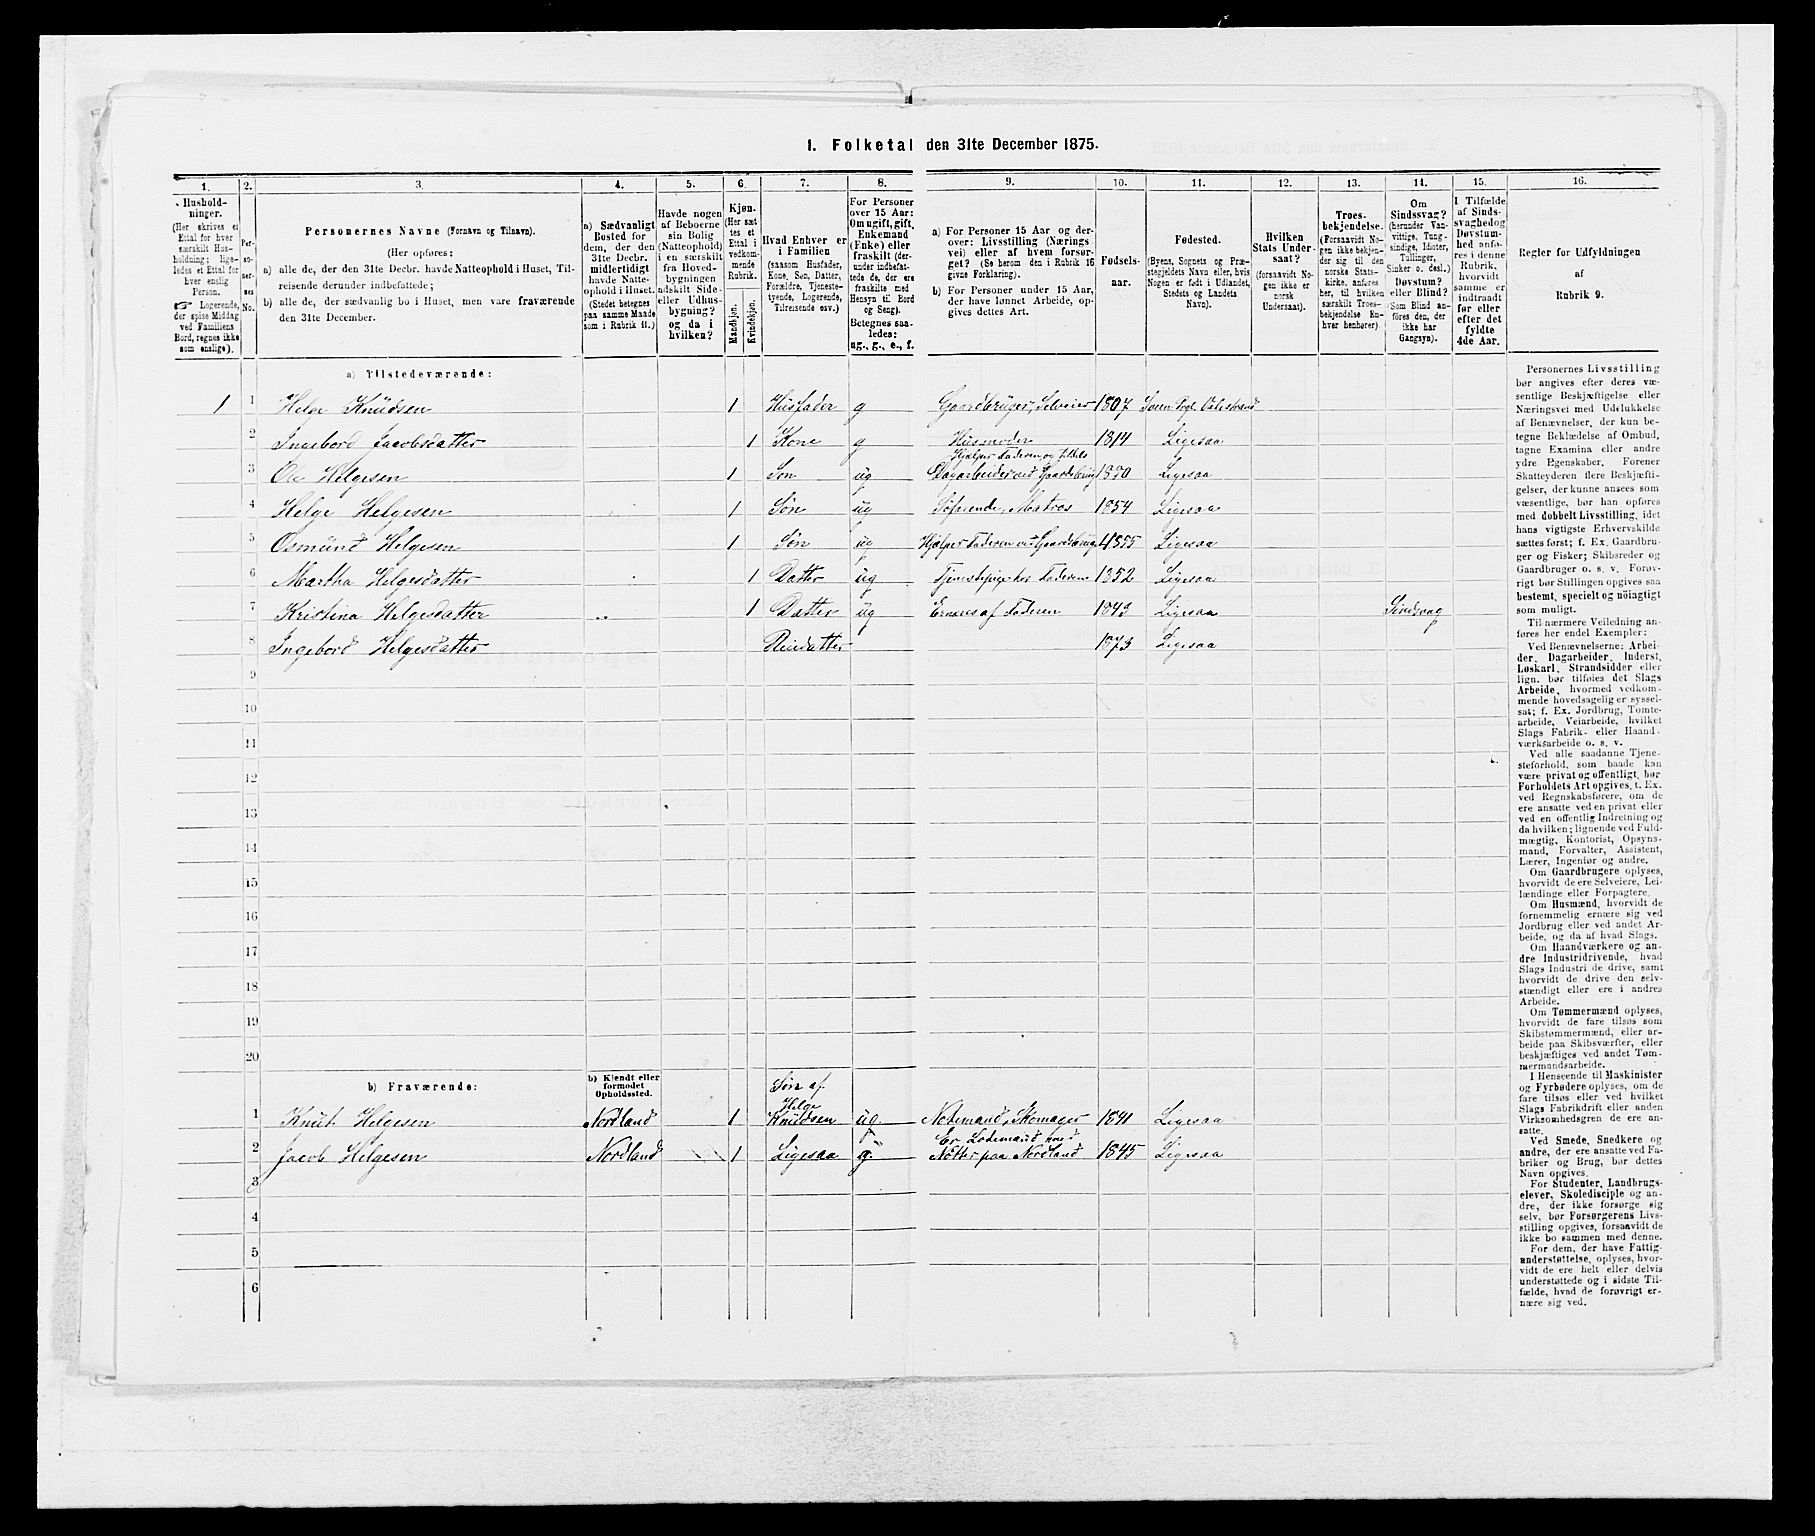 1. Folketal den 31te December 1875.
1. 2. 3. 4. 5. 6. 7. 8. 9. 10. 11. 12. 13. 14. 15. 16.
Hushold-
ninger.
(Her skrives et
Ettal for hver
særskilt Hus-
holdning; lige-
ledes et Ettal for
hver enslig
Person.
☞ Logerende,
der spise Middag
ved Familiens
Bord, regnes ikke
som enslige).
Per-
so-
ner-
nes
No.
Personernes Navne (Fornavn og Tilnavn).
(Her opføres:
a) alle de, der den 31te Decbr. havde Natteophold i Huset, Til-
reisende derunder indbefattede;
b) alle de, der sædvanlig bo i Huset, men vare fraværende
den 31te December.
a) Sædvanligt
Bosted for
dem, der den
31te Decbr.
midlertidigt
havde Natte-
ophold i Huset.
(Stedet betegnes
paa samme Maade
som i Rubrik 11.)
Havde nogen
af Beboerne
sin Bolig
(Natteophold)
i en særskilt
fra Hoved-
bygningen
adskilt Side-
eller Udhus-
bygning?
og da i
hvilken?
Kjøn.
(Her sæt-
tes et
Ettal i
vedkom-
mende
Rubrik.
Mandkjøn.
Kvindekjøn.
Hvad Enhver er
i Familien
(saasom Husfader,
Kone, Søn, Datter,
Forældre, Tjeneste-
tyende, Logerende,
Tilreisende osv.)
For Personer
over 15 Aar:
Om ugift, gift,
Enkemand
(Enke) eller
fraskilt (der-
under indbefat-
tede de, der ere
fraskilte med
Hensyn til Bord
og Seng).
Betegnes saa-
ledes:
ug., g., e., f.
a) For Personer 15 Aar og der-
over: Livsstilling (Nærings-
vei) eller af hvem forsør-
get? (Se herom den i Rubrik 16
givne Forklaring).
b) For Personer under 15 Aar,
der have lønnet Arbeide, op-
gives dettes Art.
Fødsels-
aar.
Fødested.
(Byens, Sognets og Præ-
stegjeldets Navn eller, hvis
Nogen er født i Udlandet,
Stedets og Landets
Navn).
Hvilken
Stats Under-
saat?
(forsaavidt No-
gen ikke er
norsk
Undersaat).
Troes-
bekjendelse.
(Forsaavidt No-
gen ikke bekjen-
der sig til den
norske Stats-
kirke, anføres
her, til hvilken
særskilt Troes-
bekjendelse En-
hver henhører).
Om
Sindssvag?
(herunder Van-
vittige, Tung-
sindige, Idioter,
Tullinger,
Sinker o. desl.)
Døvstum?
eller Blind?
Som Blind an-
føres den, der
ikke har
Gangsyn).
I Tilfælde
af Sinds-
svaghed og
Døvstum-
hed anfø-
res i denne
Rubrik,
hvorvidt
samme er
indtraadt
før eller
efter det
fyldte
4de Aar.
Regler for Udfyldningen
af
Rubrik 9.
a) Tilstedeværende:
1 1 Helge Knudsen 1 Husfader g Gaardbruger, Selveier 1807 Soen Prgl. Valestrand
2 Ingebord Jacobsdatter 1 Kone g Husmoder 1814 Ligesaa
Hjælper Faderen og tildels
3 Ole Helgesen 1 Søn ug Dagarbeider ved Gaardsbrug 1850 Ligesaa
4 Helge Helgesen 1 Søn ug Søfarende, Matros 1854 Ligesaa
5 Osmund Helgesen 1 Søn ug Hjælper Faderen ved Gaardsbrug 1855 Ligesaa
6 Martha Helgesdatter 1 Datter ug Tjenestepige hos Faderen 1852 Ligesaa
7 Kristina Helgesdatter 1 Datter ug Ernæres af Faderen 1843 Ligesaa Sindsvag
8 Ingebord Helgesdatter 1873 Ligesaa
9
10
11
12
13
14
15
16
17
18
19
20
b) Fraværende:
b) Kjendt eller
formodet
Opholdssted.
Søn af
Helge
1 Knut Helgesen Nordland 1 Knudsen ug Nodemand, Skomager 1841 Ligesaa
2 Jacob Helgesen Nordland 1 Ligesaa g. Notter paa Nordland 1845 Ligesaa
3
4
5
6
Personernes Livsstilling
bør angives efter deres væ-
sentlige Beskjæftigelse eller
Næringsvei med Udelukkelse
af Benævnelser, der kun be-
tegne Beklædelse af Ombud,
tagne Examina eller andre
ydre Egenskaber. Forener
Skatteyderen flere Beskjæfti-
gelser, der kunne ansees som
væsentlige, bør han opføres
med dobbelt Livsstilling, idet
hans vigtigste Erhvervskilde
sættes først; f. Ex. Gaardbru-
ger og Fisker; Skibsreder og
Gaardbruger o. s. v. Forøv-
rigt bør Stillingen opgives saa
bestemt, specielt og nøiagtigt
som muligt.
Til nærmere Veiledning an-
føres her endel Exempler:
Ved Benævnelserne: Arbei-
der, Dagarbeider, Inderst,
Løskarl, Strandsidder eller
lign. bør tilføies det Slags
Arbeide, hvormed vedkom-
mende hovedsagelig er syssel-
sat; f. Ex. Jordbrug, Tomte-
arbeide, Veiarbeide, hvilket
Slags Fabrik- eller Haand-
værksarbeide o. s. v.
Ved alle saadanne Tjene-
steforhold, som baade kan
være privat og offentligt, bør
Forholdets Art opgives, t. Ex.
ved Regnskabsførere, om de
ere ansatte ved en privat eller
ved en offentlig Indretning og
da hvilken; lignende ved Fuld-
mægtig, Kontorist, Opsyns-
mand, Forvalter, Assistent,
Lærer, Ingeniør og andre.
Om Gaardbrugere oplyses,
hvorvidt de ere Selveiere, Lei-
lændinge eller Forpagtere.
Om Husmænd, hvorvidt de
fornemmelig ernære sig ved
Jordbrug eller ved andet Ar-
beide, og da af hvad Slags.
Om Haandværkere og an-
dre Industridrivende, hvad
Slags Industri de drive, samt
hvorvidt de drive den selv-
stændigt eller ere i andres
Arbeide.
Om Tømmermænd oplyses,
hvorvidt de fare tilsøs som
Skibstømmermænd, eller ar-
beide paa Skibsværfter, eller
beskjæftiges ved andet Tøm-
mermandsarbeide.
I Henseende til Maskinister
og Fyrbødere oplyses, om de
fare tilsøs eller ved hvilket
Slags Fabrikdrift eller anden
Virksomhedsgren de ere an-
satte.
Ved Smede, Snedkere og
andre, der ere ansatte ved Fa-
briker og Brug, bør dettes
Navn opgives.
For Studenter, Landbrugs-
elever, Skoledisciple og an-
dre, der ikke forsørge sig
selv, bør Forsørgerens Livs-
stilling opgives, forsaavidt de
ikke bo sammen med denne.
For dem, der have Fattig-
understøttelse, oplyses, hvor-
vidt de ere helt eller delvis
understøttede og i sidste Til-
fælde, hvad de forøvrigt er-
nære sig ved.